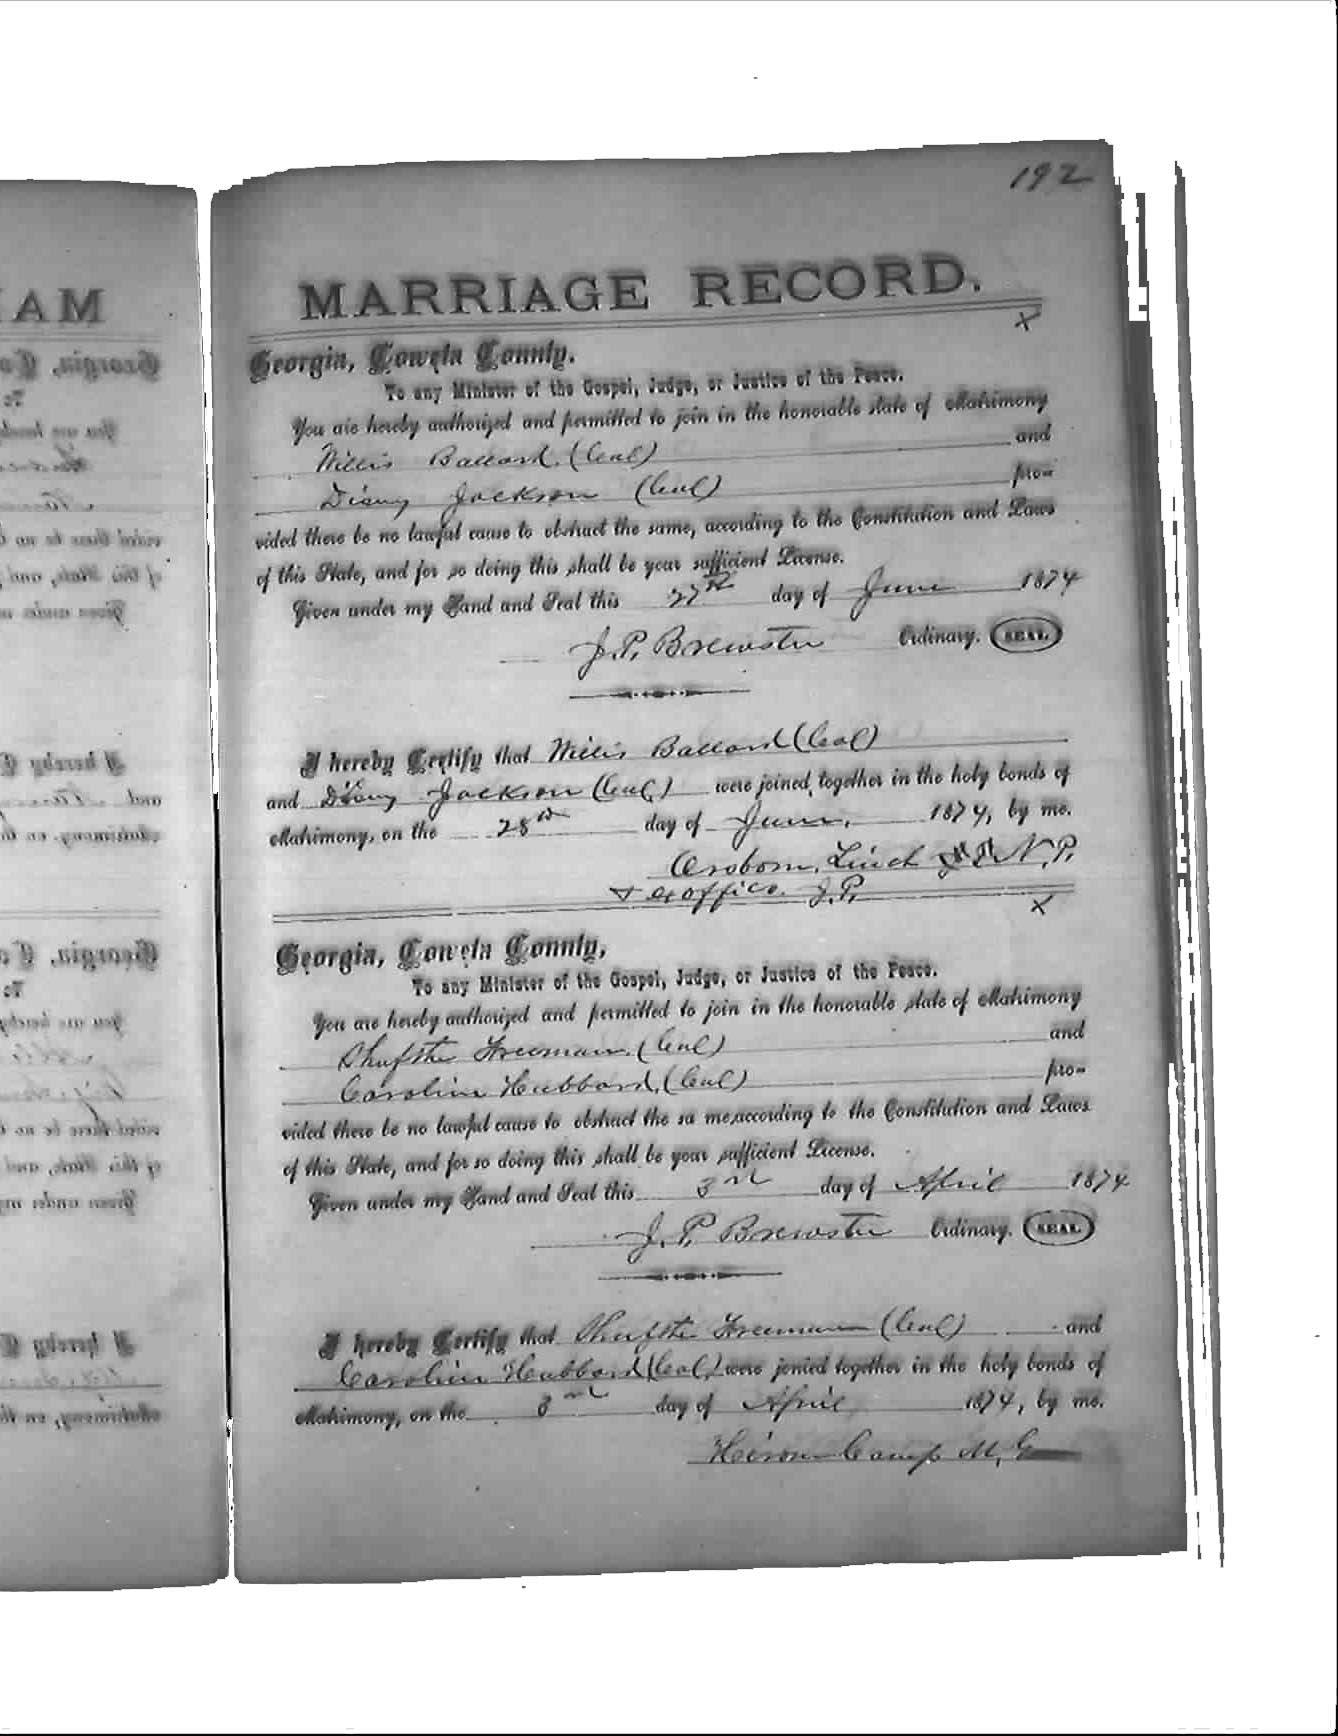 192
MARRIAGE RECORD.
x
Georgia, Coweta County.
To any Minister of the Gospel, Judge, or Justice of the Peace.
You are hereby authorized and permitted to join in the honorable state of Matrimony
Willis Ballard. (Col) and
Jackson (Col) pro-
vided there be no lawful cause to obstruct the same, according to the Constitution and Laws
of this State, and for so doing this shall be your sufficient License.
Given under my Hand and Seal this 27th day of June 1874
J. P. Brewster Ordinary. SEAL
I hereby Certify that Willis Ballard (Col)
and Jackson (Col) were joined together in the holy bonds of
Matrimony, on the 28th day of June. 1874, by me.
Linch N. P.
+ ex office. J. P.
x
Georgia, Coweta County,
To any Minister of the Gospel, Judge, or Justice of the Peace.
You are hereby authorized and permitted to join in the honorable state of Matrimony
Freeman. (Col) and
Caroline Hubbard. (Col) pro-
vided there be no lawful cause to obstruct the sa me, according to the Constitution and Laws
of this State, and for so doing this shall be your sufficient License.
Given under my Hand and Seal this 3rd day of April 1874
J. P. Brewster Ordinary. SEAL
I hereby Certify that Freeman (Col) and
Caroline Hubbard (Col) were jonied together in the holy bonds of
Matrimony, on the 3rd day of April 1874, by me.
Camp M. G